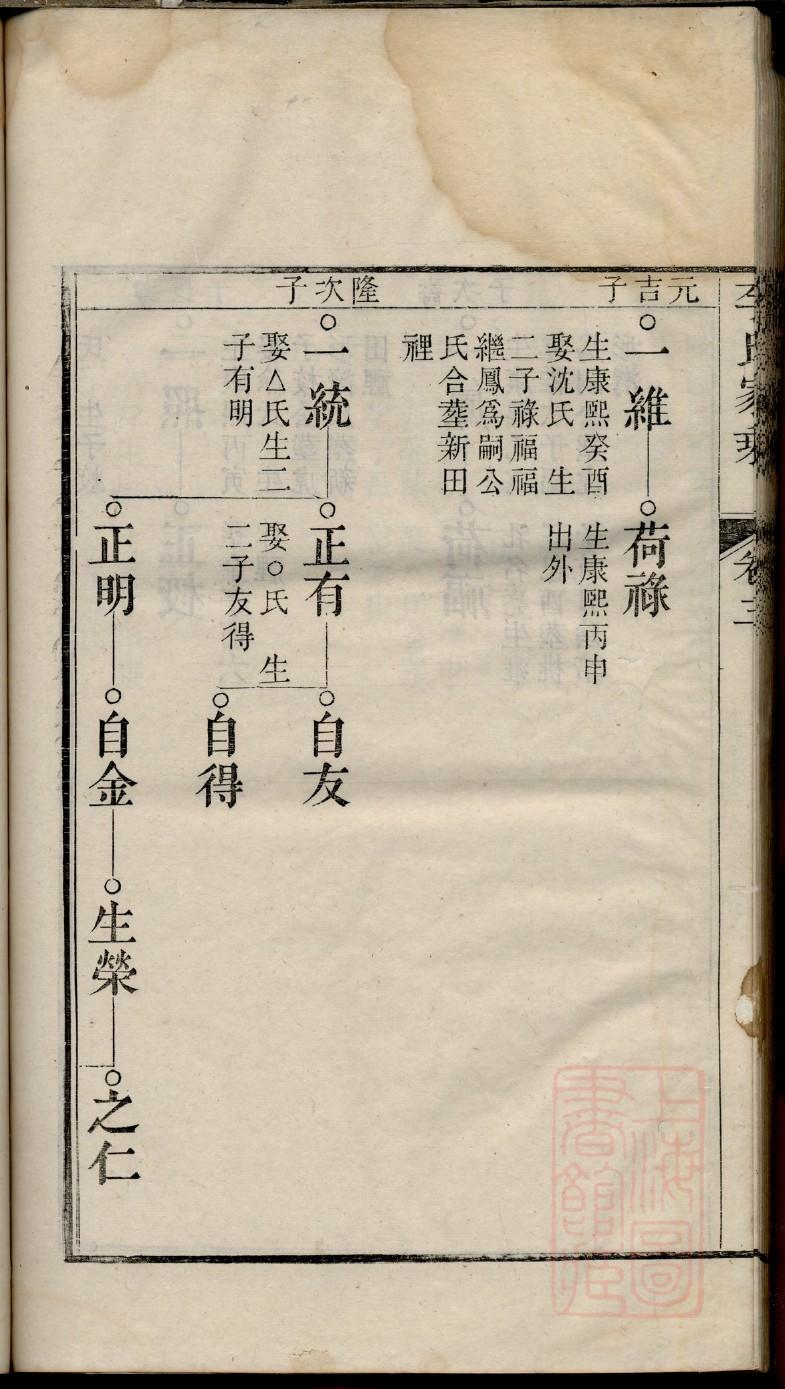 李氏家乘
卷三
元吉子
一維
生康熙癸酉
娶沈氏 生
二子祿福福
繼鳳爲嗣公
氏合塟新田
裡
荷祿
生康熙丙申
出外
隆次子
一統
娶△氏生二
子有明
正有
娶○氏 生
二子友得
自友
自得
正明
自金
生榮
之仁
上海圖
書館藏